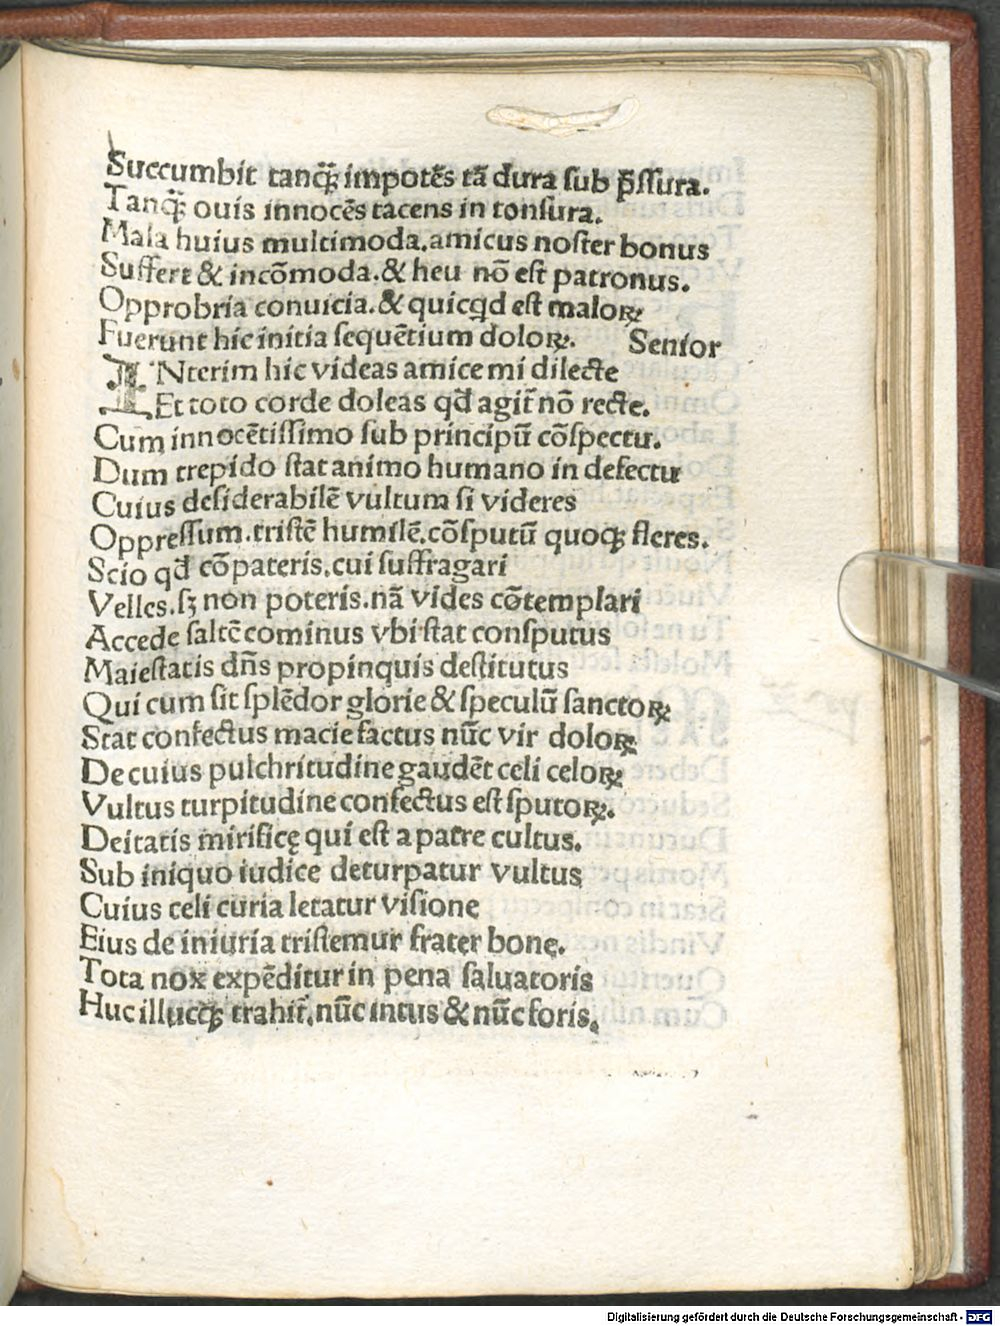 Succumbit tanqꝫ̃ impotēs tā dura ſub p̄ſſura.
Tanqꝫ̃ ouis innocēs tacens in tonſura.
Mala huius multimoda.amicus noſter bonus
Suffert & incōmoda.& heu nō eſt patronus.
Opprobria conuicia.& quicꝗd eſt maloꝝ
Fuerunt hic initia ſequētium doloꝝ. Senior
INterim hic videas amice mi dilecte
Et toto corde doleas qd̄ agit̃ nō recte.
Cum innocētiſſimo ſub principū cōſpectu.
Dum trepido ſtat animo humano in defectu
Cuius deſiderabilē vultum ſi videres
Oppreſſum.triſtē humilē.cōſputū quoqꝫ fleres.
Scio qd̄ cōpateris.cui ſuffragari
Velles.ſꝫ non poteris.nā vides cōtemplari
Accede ſaltē cominus vbi ſtat conſputus
Maieſtatis dn̄s propinquis deſtitutus
Qui cum ſit ſplēdor glorie & ſpeculū ſanctoꝝ
Stat confectus macie factus nūc vir doloꝝ
De cuius pulchritudine gaudēt celi celoꝝ
Vultus turpitudine confectus eſt ſputoꝝ.
Deitatis mirificę qui eſt a patre cultus.
Sub iniquo iudice deturpatur vultus
Cuius celi curia letatur viſione
Eius de iniuria triſtemur frater bonę.
Tota nox expēditur in pena ſaluatoris
Huc illucqꝫ̃ trahit̃.nūc intus & nūc foris.
Digitalisierung gefördert durch die Deutsche Forschungsgemeinschaft - DFG